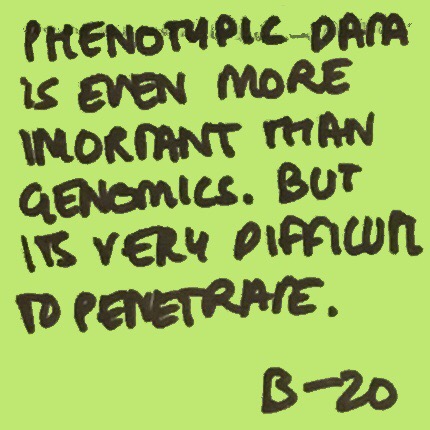 PHENOTYPIC DATA
IS EVEN MORE
IMORTANT THAN
GENOMICS. BUT
ITS VERY DIFFICULT
TO PENETRATE.
B-20